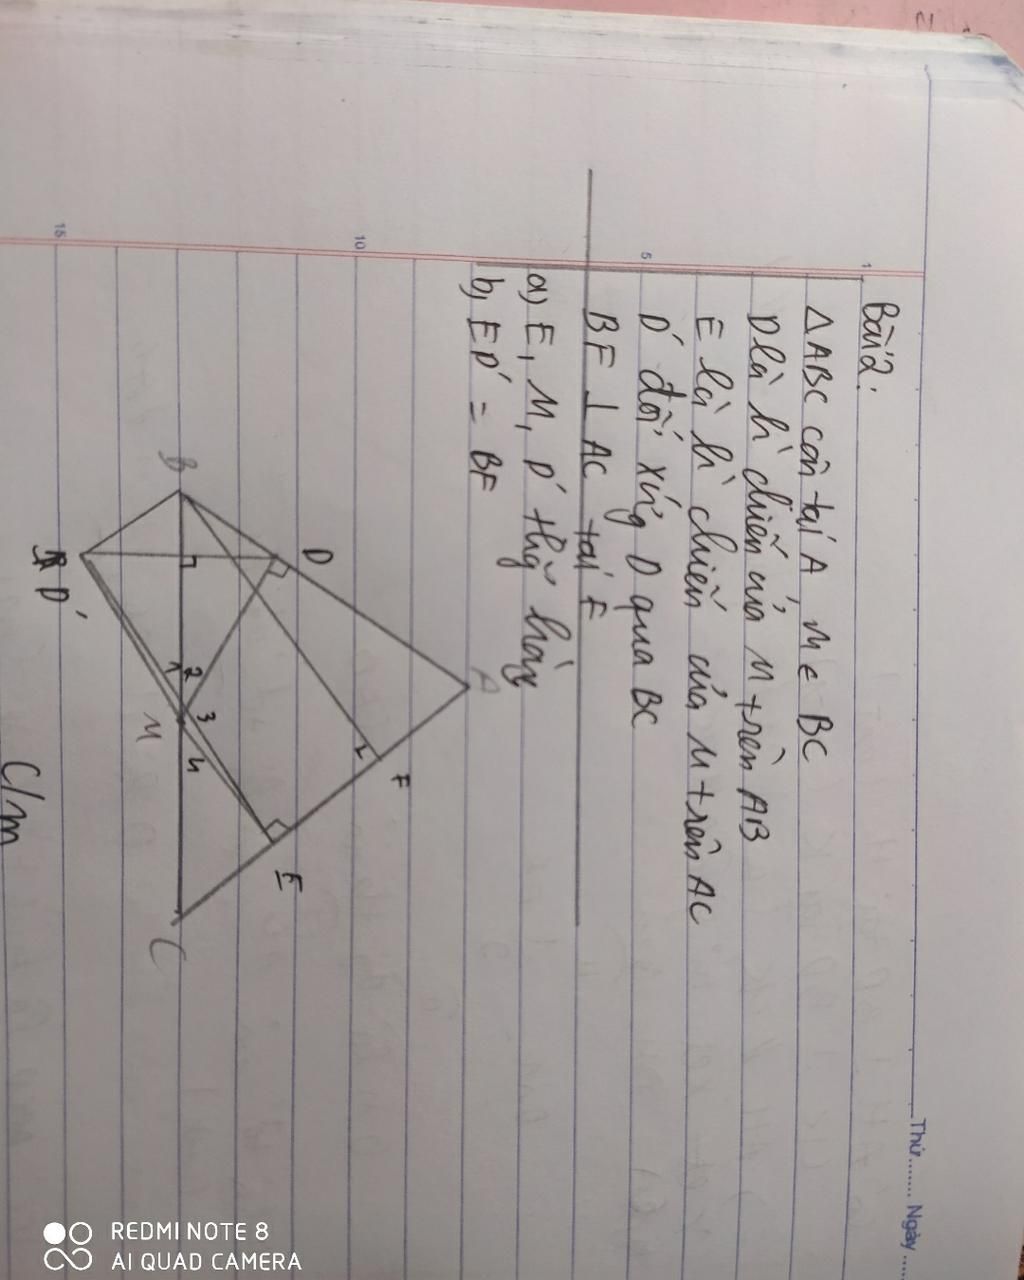 Thứ....... Ngày ....
Bài 2:
△ABC cân tại A, M ∈ BC
D là h` chiếu của M trên AB
E là h` chiếu của M trên AC
D' đối xứng D qua BC
BF ⊥ AC tại F
a) E, M, D' thẳg hàg
b) ED' = BF
1
5
10
15
A
D
F
B
E
2
3
1
4
M
C
D'
C/m
REDMI NOTE 8
AI QUAD CAMERA